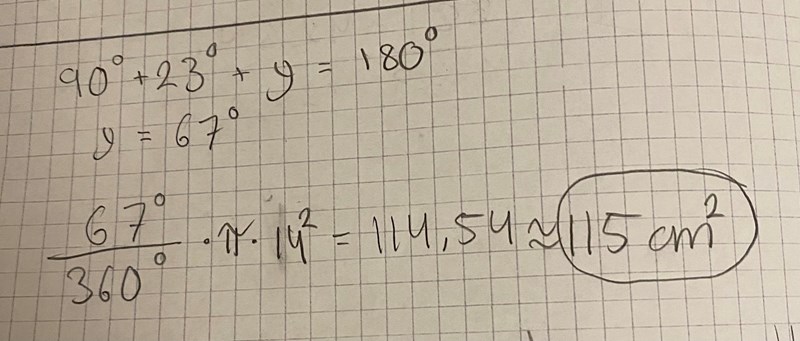 90° + 23° + y = 180°
y = 67°
67°/360° · π · 14² = 114,54 ≈ 115 cm²